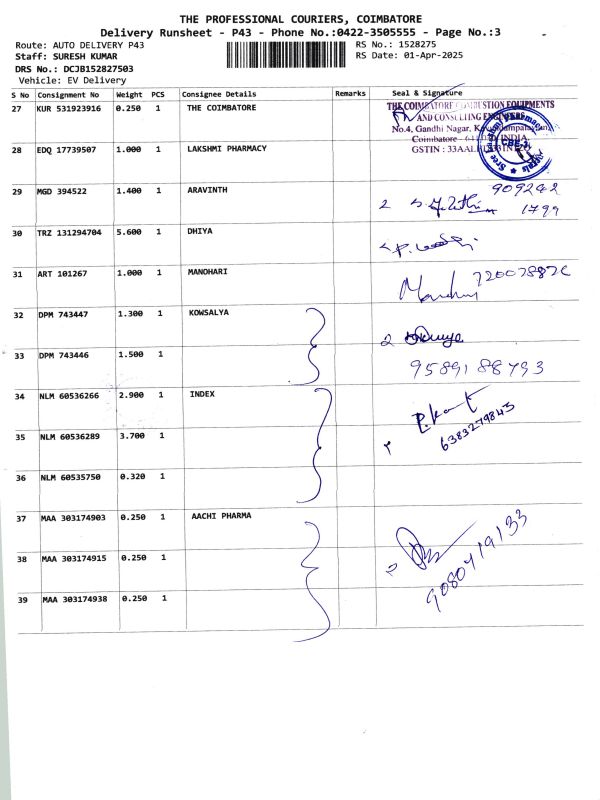 THE PROFESSIONAL COURIERS, COIMBATORE
Delivery Runsheet - P43 - Phone No.:0422-3505555 - Page No.:3
Route: AUTO DELIVERY P43 RS No.: 1528275
Staff: SURESH KUMAR RS Date: 01-Apr-2025
DRS No.: DCJB152827503
Vehicle: EV Delivery
S No Consignment No Weight PCS Consignee Details Remarks Seal & Signature
27 KUR 531923916 0.250 1 THE COIMBATORE
THE COIMBATORE COMBUSTION EQUIPMENTS
AND CONSULTING ENGINEERS
No.4, Gandhi Nagar,
Coimbatore INDIA
GSTIN : 33AAL
28 EDQ 17739507 1.000 1 LAKSHMI PHARMACY
Pharmacy
CBE-3
29 MGD 394522 1.400 1 ARAVINTH
909242
1799
30 TRZ 131294704 5.600 1 DHIYA
31 ART 101267 1.000 1 MANOHARI
32 DPM 743447 1.300 1 KOWSALYA
33 DPM 743446 1.500 1
9589188793
34 NLM 60536266 2.900 1 INDEX
6383279843
35 NLM 60536289 3.700 1
36 NLM 60535750 0.320 1
37 MAA 303174903 0.250 1 AACHI PHARMA
38 MAA 303174915 0.250 1
9080419133
39 MAA 303174938 0.250 1